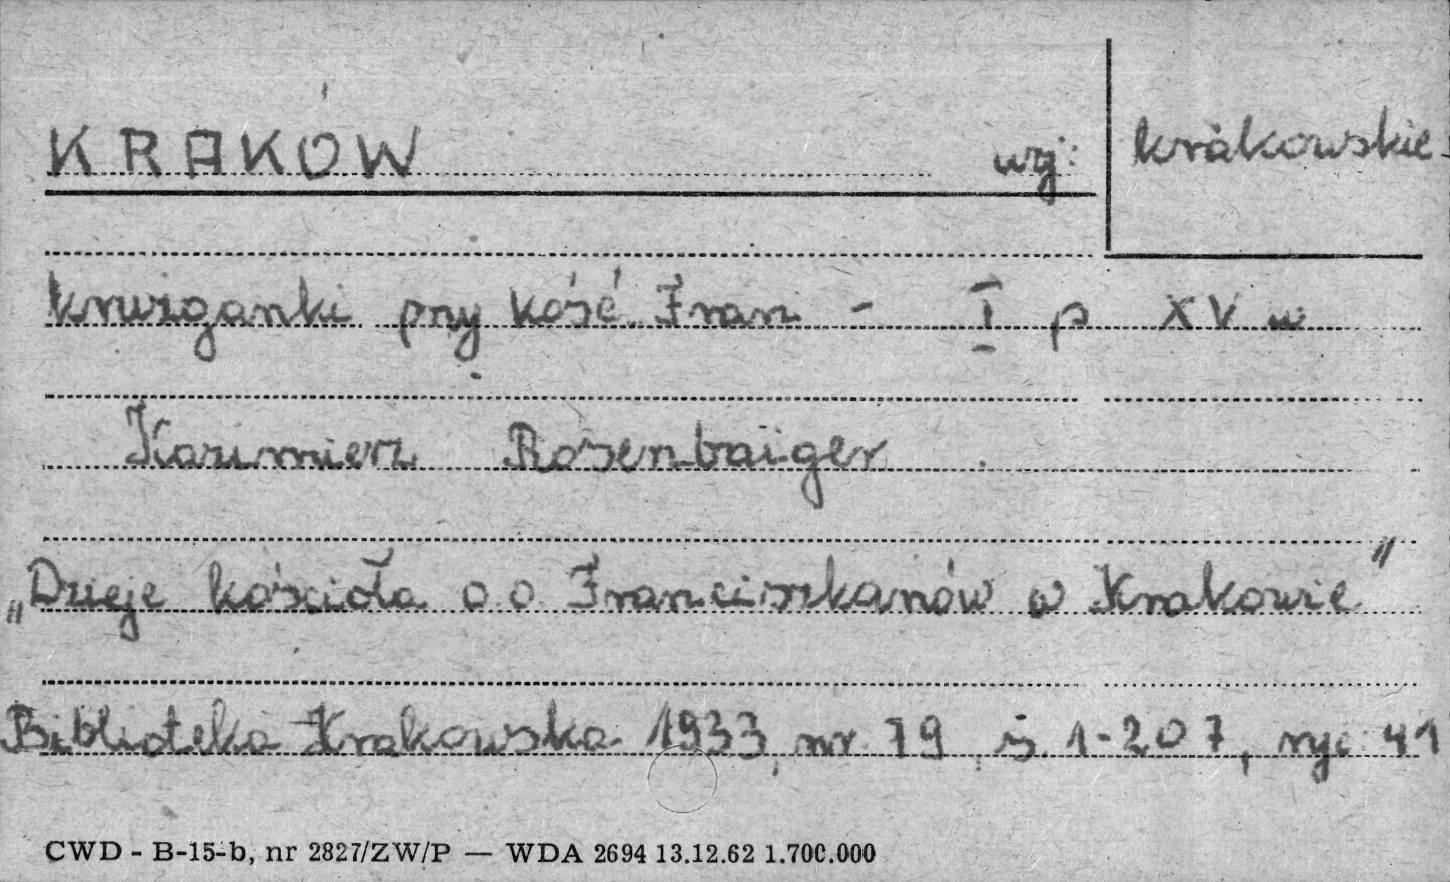 KRAKÓW woj: krakowskie
krużganki przy kość. Fran - I p XV w
Kazimierz Rosenbaiger
„Dzieje kościoła o.o. Franciszkanów w Krakowie"
Biblioteka Krakowska 1933, nr. 79, s. 1-207, ryc 41
CWD - B-15-b, nr 2827/ZW/P — WDA 2694 13.12.62 1.700.000